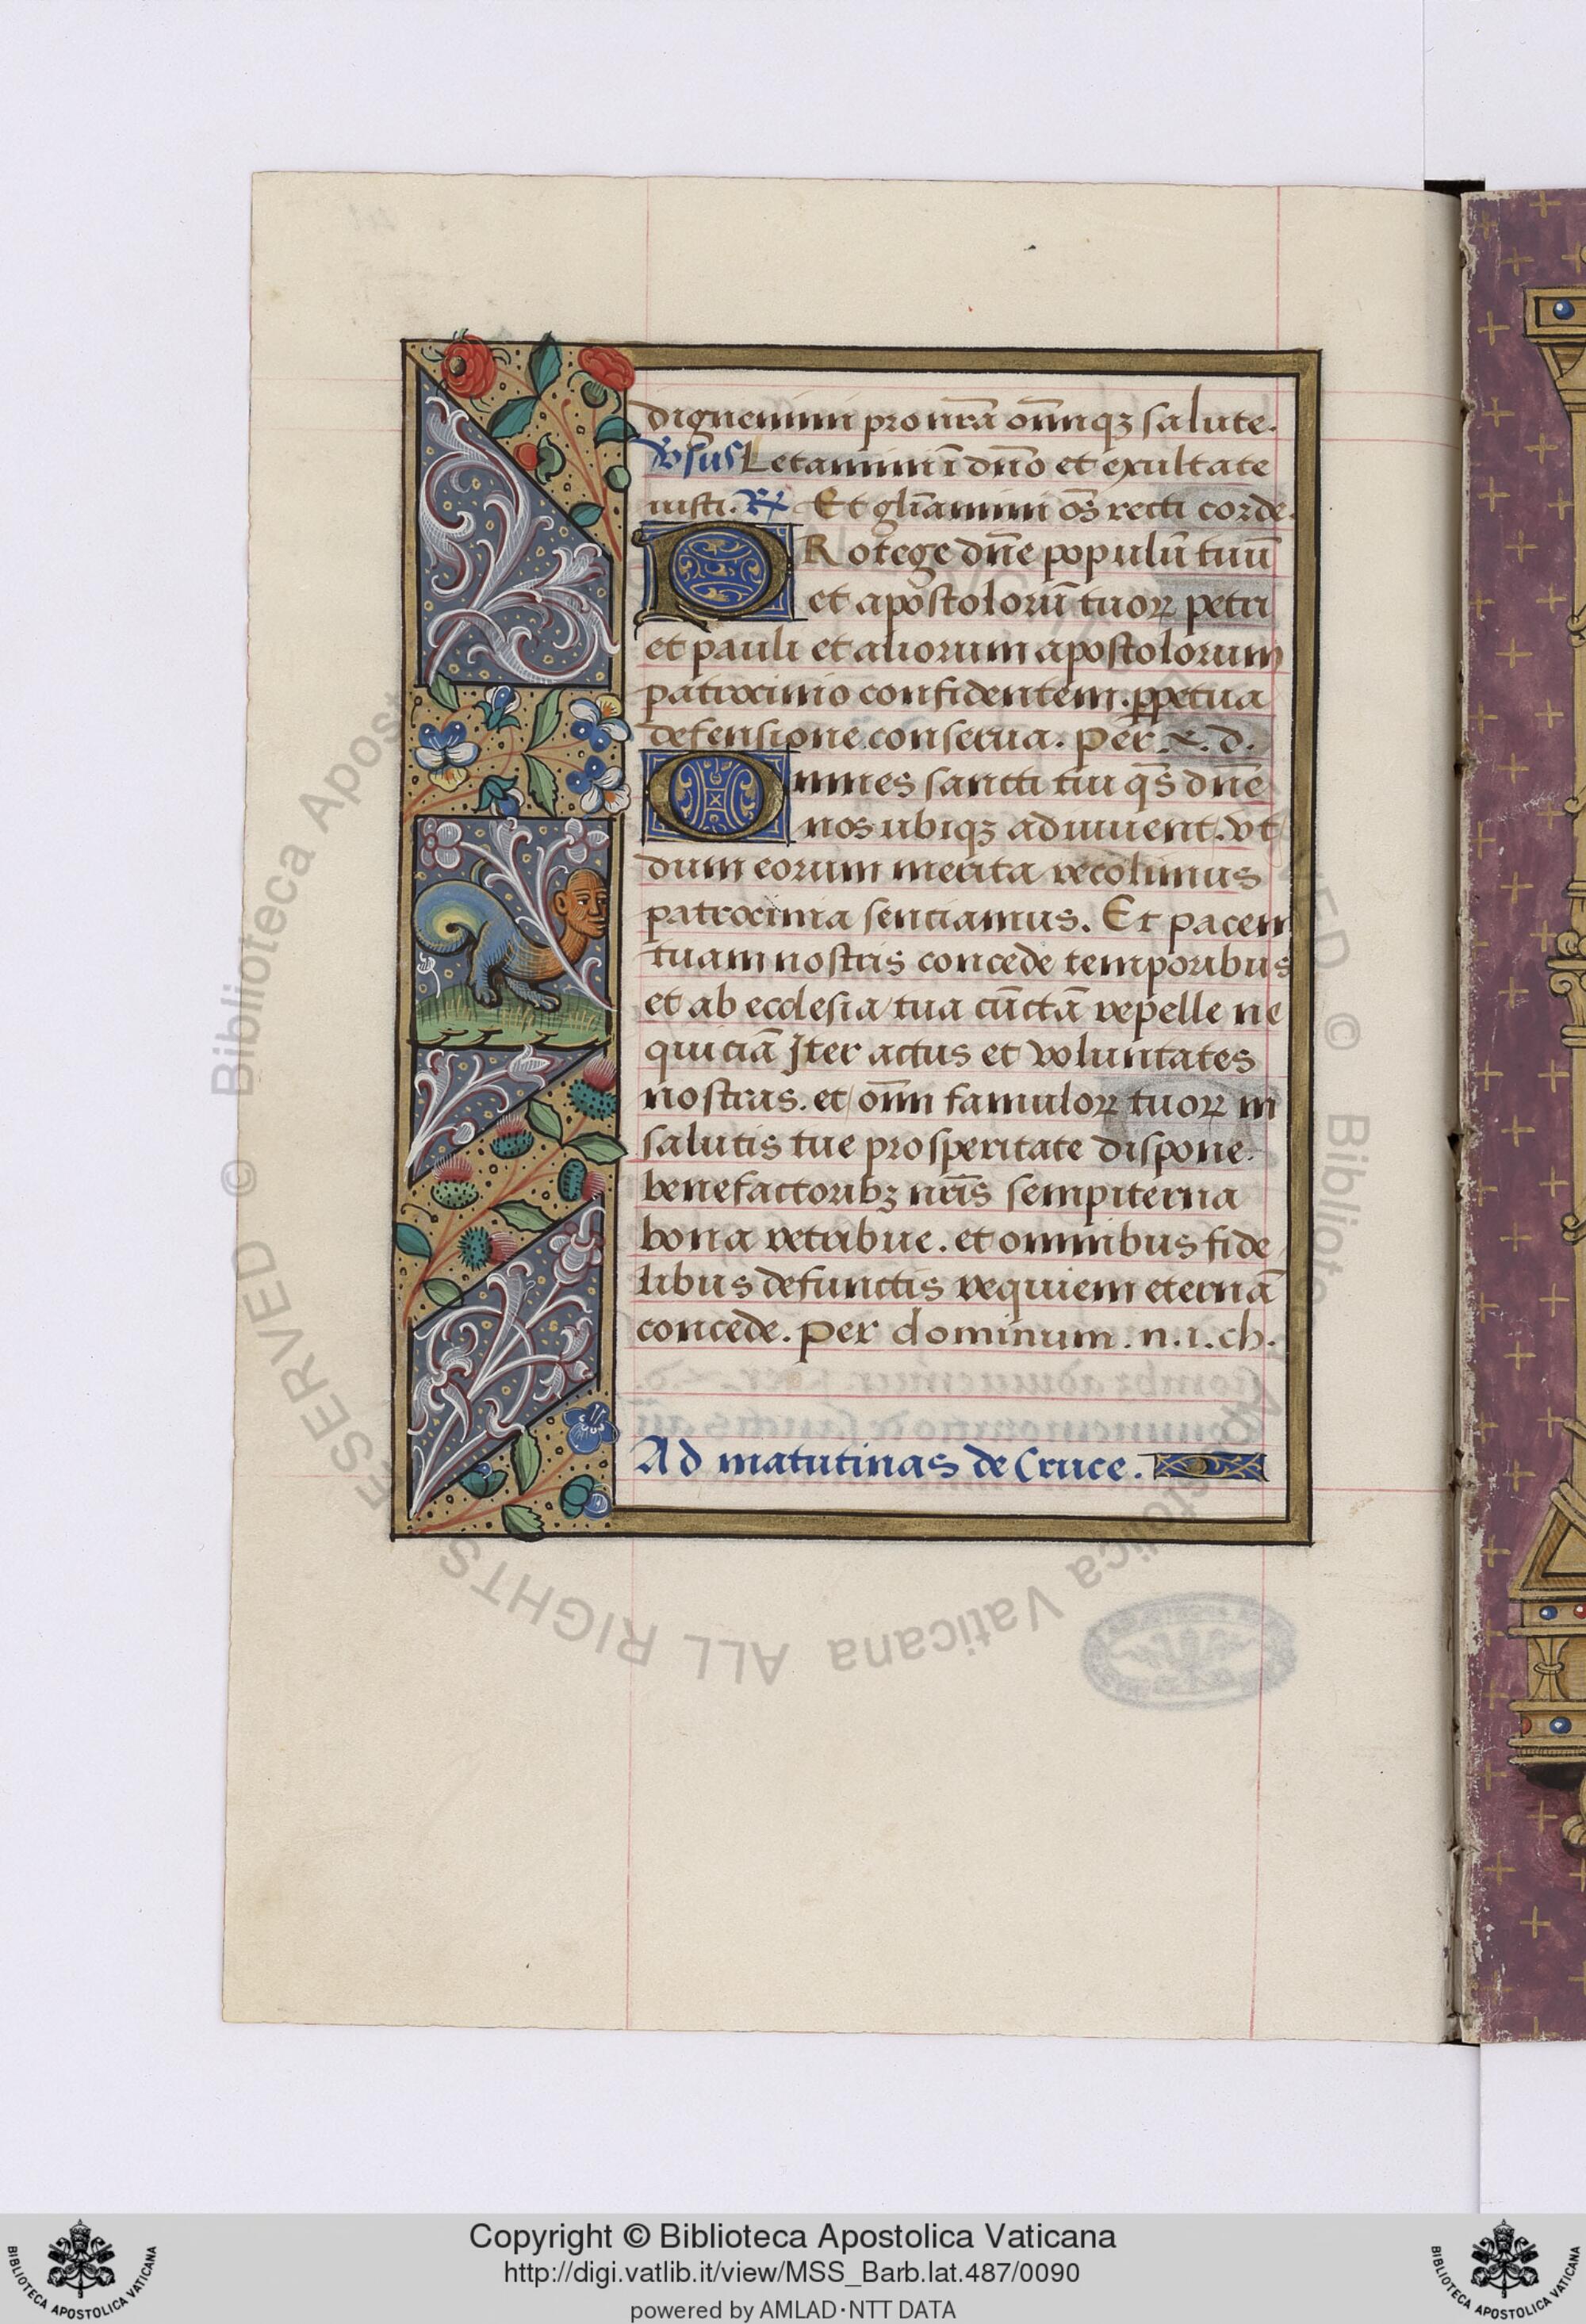 dignemini pro nr̄a om̄niqꝫ salute.
Vsus Letamini ī dn̄o et exultate
iusti. ℟ Et gl̄iamini om̄s recti corde.
PRotege dn̄e populū tuū
et apostolorū tuoꝝ petri
et pauli et aliorum apostolorum
patrocinio confidentem. ꝑpetua
defensione conserua. Per. x. d.
Omnes sancti tui qs̄ dn̄e
nos ubiqꝫ adiuuent. vt
dum eorum merita recolimus
patrocinia sentiamus. Et pacem
tuam nostris concede temporibus
et ab ecclesia tua cūctā repelle ne
quiciā Iter actus et voluntates
nostras. et om̄ni famuloꝝ tuoꝝ in
salutis tue prosperitate dispone.
benefactoribꝫ nr̄is sempiterna
bona retribue. et omnibus fide
libus defunctis requiem eternā
concede. Per dominum. n. i. ch.
Ad matutinas de Cruce.
Copyright © Biblioteca Apostolica Vaticana
http://digi.vatlib.it/view/MSS_Barb.lat.487/0090
powered by AMLAD·NTT DATA
BIBLIOTECA APOSTOLICA VATICANA
BIBLIOTECA APOSTOLICA VATICANA